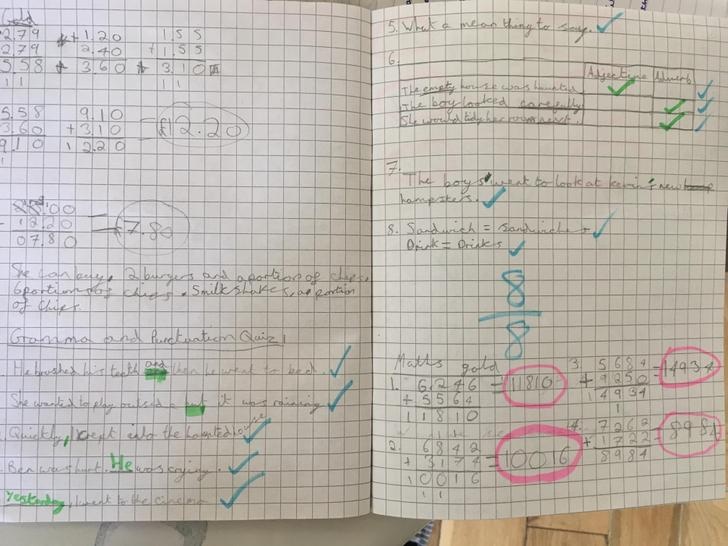 Gold
2.79 + 1.20 1.55
2.79 2.40 + 1.55
5.58 3.60 3.10
1 1 1 1
5.58 9.10
3.60 + 3.10 = £12.20
9.10 12.20
1
.00
- 12.20 = £7.80
07.80
She can buy, 2 burgers and a portion of chips.
6 portions of chips. 5 milkshakes, a portion
of chips.
Gramma and Punctuation Quiz
He brushed his teeth and then he went to bed.
She wanted to play outside but it was raining
Quickly, I crept into the haunted house
Ben was hurt. He was crying.
Yesterday, I went to the cinema
5. What a mean thing to say.
6.
Adjective Adverb
The empty house was haunted
The boy looked carefully
She would tidy her room next.
7.
The boys went to look at kevin's new
hampsters.
8. Sandwich = Sandwiches
Drink = Drinks
8
8
Maths gold
1. 6246 = 11810
+ 5564
11810
2. 6842
+ 3174 = 10016
10016
1 1
3. 5684 = 14934
+ 9250
14934
1
4. 7262
+ 1722 = 8984
8984